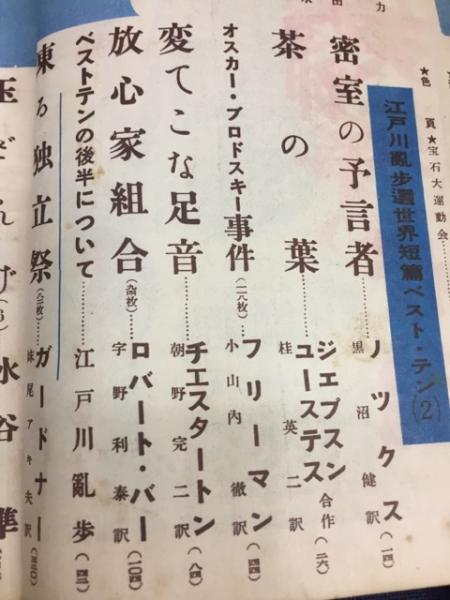 ★色頁★宝石大運動会
江戸川亂歩選世界短篇ベスト・テン(2)
密室の予言者……ノックス 黒沼健訳(一四)
茶の葉……ジェプスン ユーステス 合作 桂英二訳(二六)
オスカー・ブロドスキー事件(一二八枚)……フリーマン 小山内徹訳(四四)
変てこな足音……チェスタートン 朝野完二訳(八四)
放心家組合……ロバート・バー 宇野利泰訳(一〇四)
ベストテンの後半について……江戸川亂歩(四二)
凍る独立祭(八三枚)……ガードナー 妹尾アキ夫訳
玉 水谷準